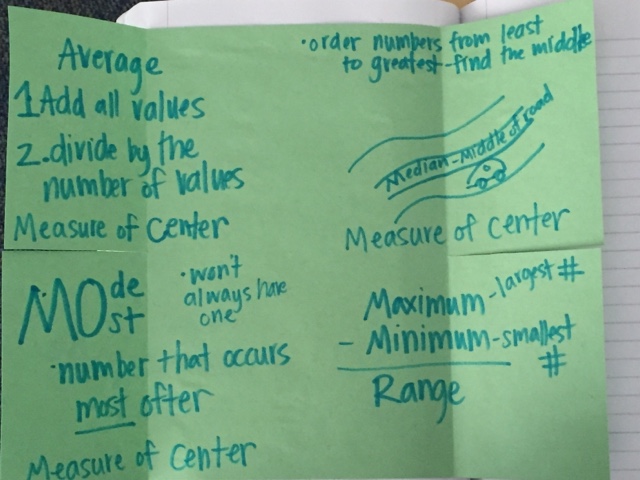 Average
1 Add all values
2. divide by the
number of values
Measure of Center
·order numbers from least
to greatest-find the middle
Median-Middle of road
Measure of Center
MOde
st
·won't
always have
one
·number that occurs
most often
Measure of Center
Maximum-largest #
- Minimum-smallest
#
Range